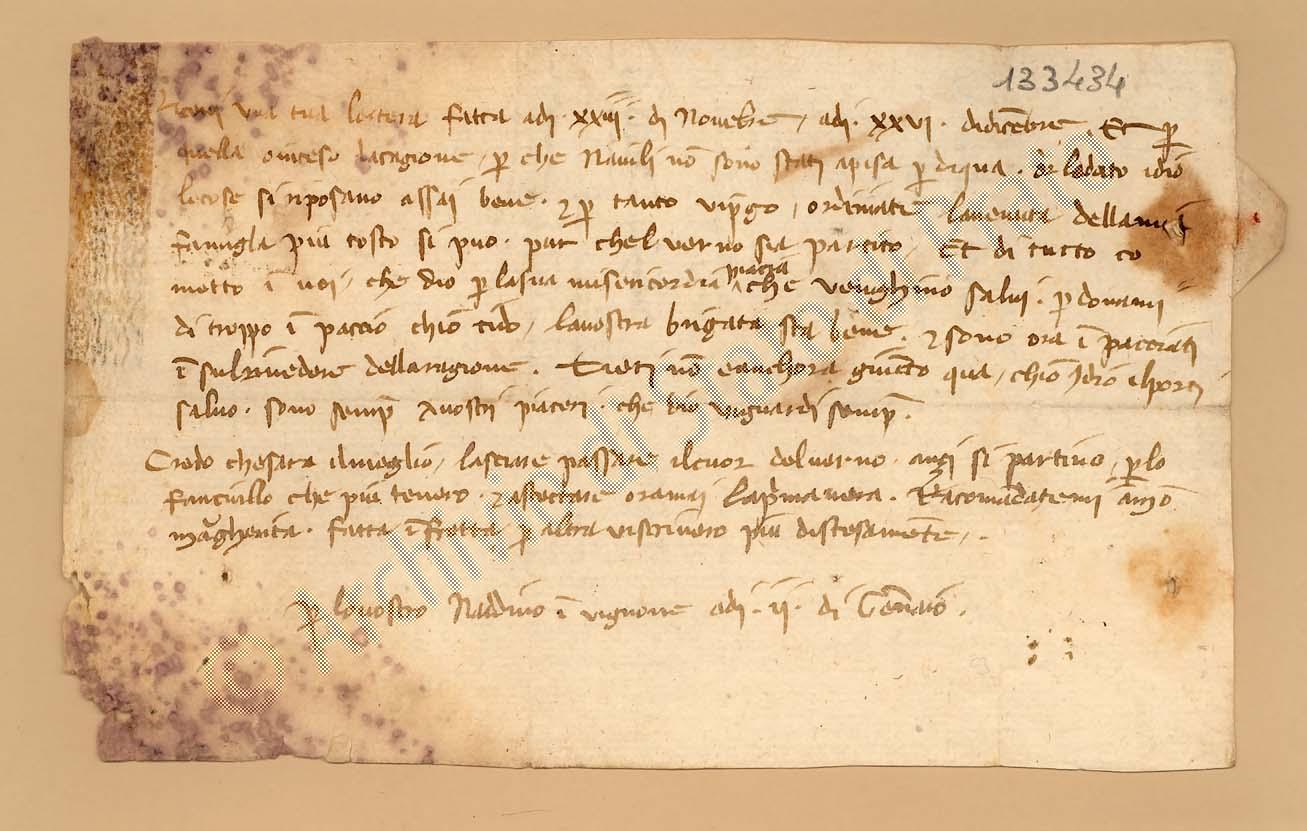 133434
una tua lectera fatta adi · xxiii · di Novēbre / adi · xxvi · didicēbre . Et p̄
quella o inteso lacagione / p̄ che Navili nō sono stati apisa p̄ diqua . Or lodato idio
lecose si riposano assai bene . ⁊ p̄ tanto vi p̄go / ordiniate lavenuta della mi ī
famigla piu tosto si puo . pur chel verno sia partito / Et di tutto co
metto ī voi / che dio p̄ la sua misericordia piaccia che venghino salvi . p̄donami
di troppo ī paccio chio ti do / la vostra brigata sta bene . ⁊ sono ora ī paccati
ī sul rivedere della ragione . Tieri nō e anchora giūto qua / chio Idio il porti
salvo . sono semp̄ a vostri piaceri . che dio vi guardi semp̄ .
Credo che sara il meglio / lasciare passare il cuor del verno . anzi si partino / p̄ lo
fanciullo che piu tenero . ⁊ aspectare oramai la p̄mavera . Racomādatemi a mōa
margherita . fatta ī fretta / p̄ altra vi scrivero piu distesamēte / .
p̄ lo vostro Naddino ī vignone adi · ii · di Gēnaio .
© Archivio di Stato di Prato